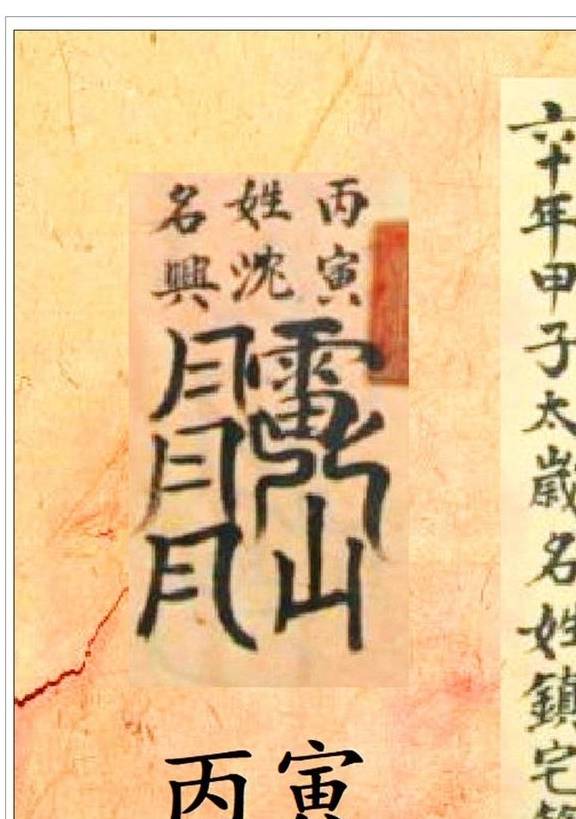 六十年甲子太歲名姓鎮宅
丙寅
姓沈
名興
丙寅